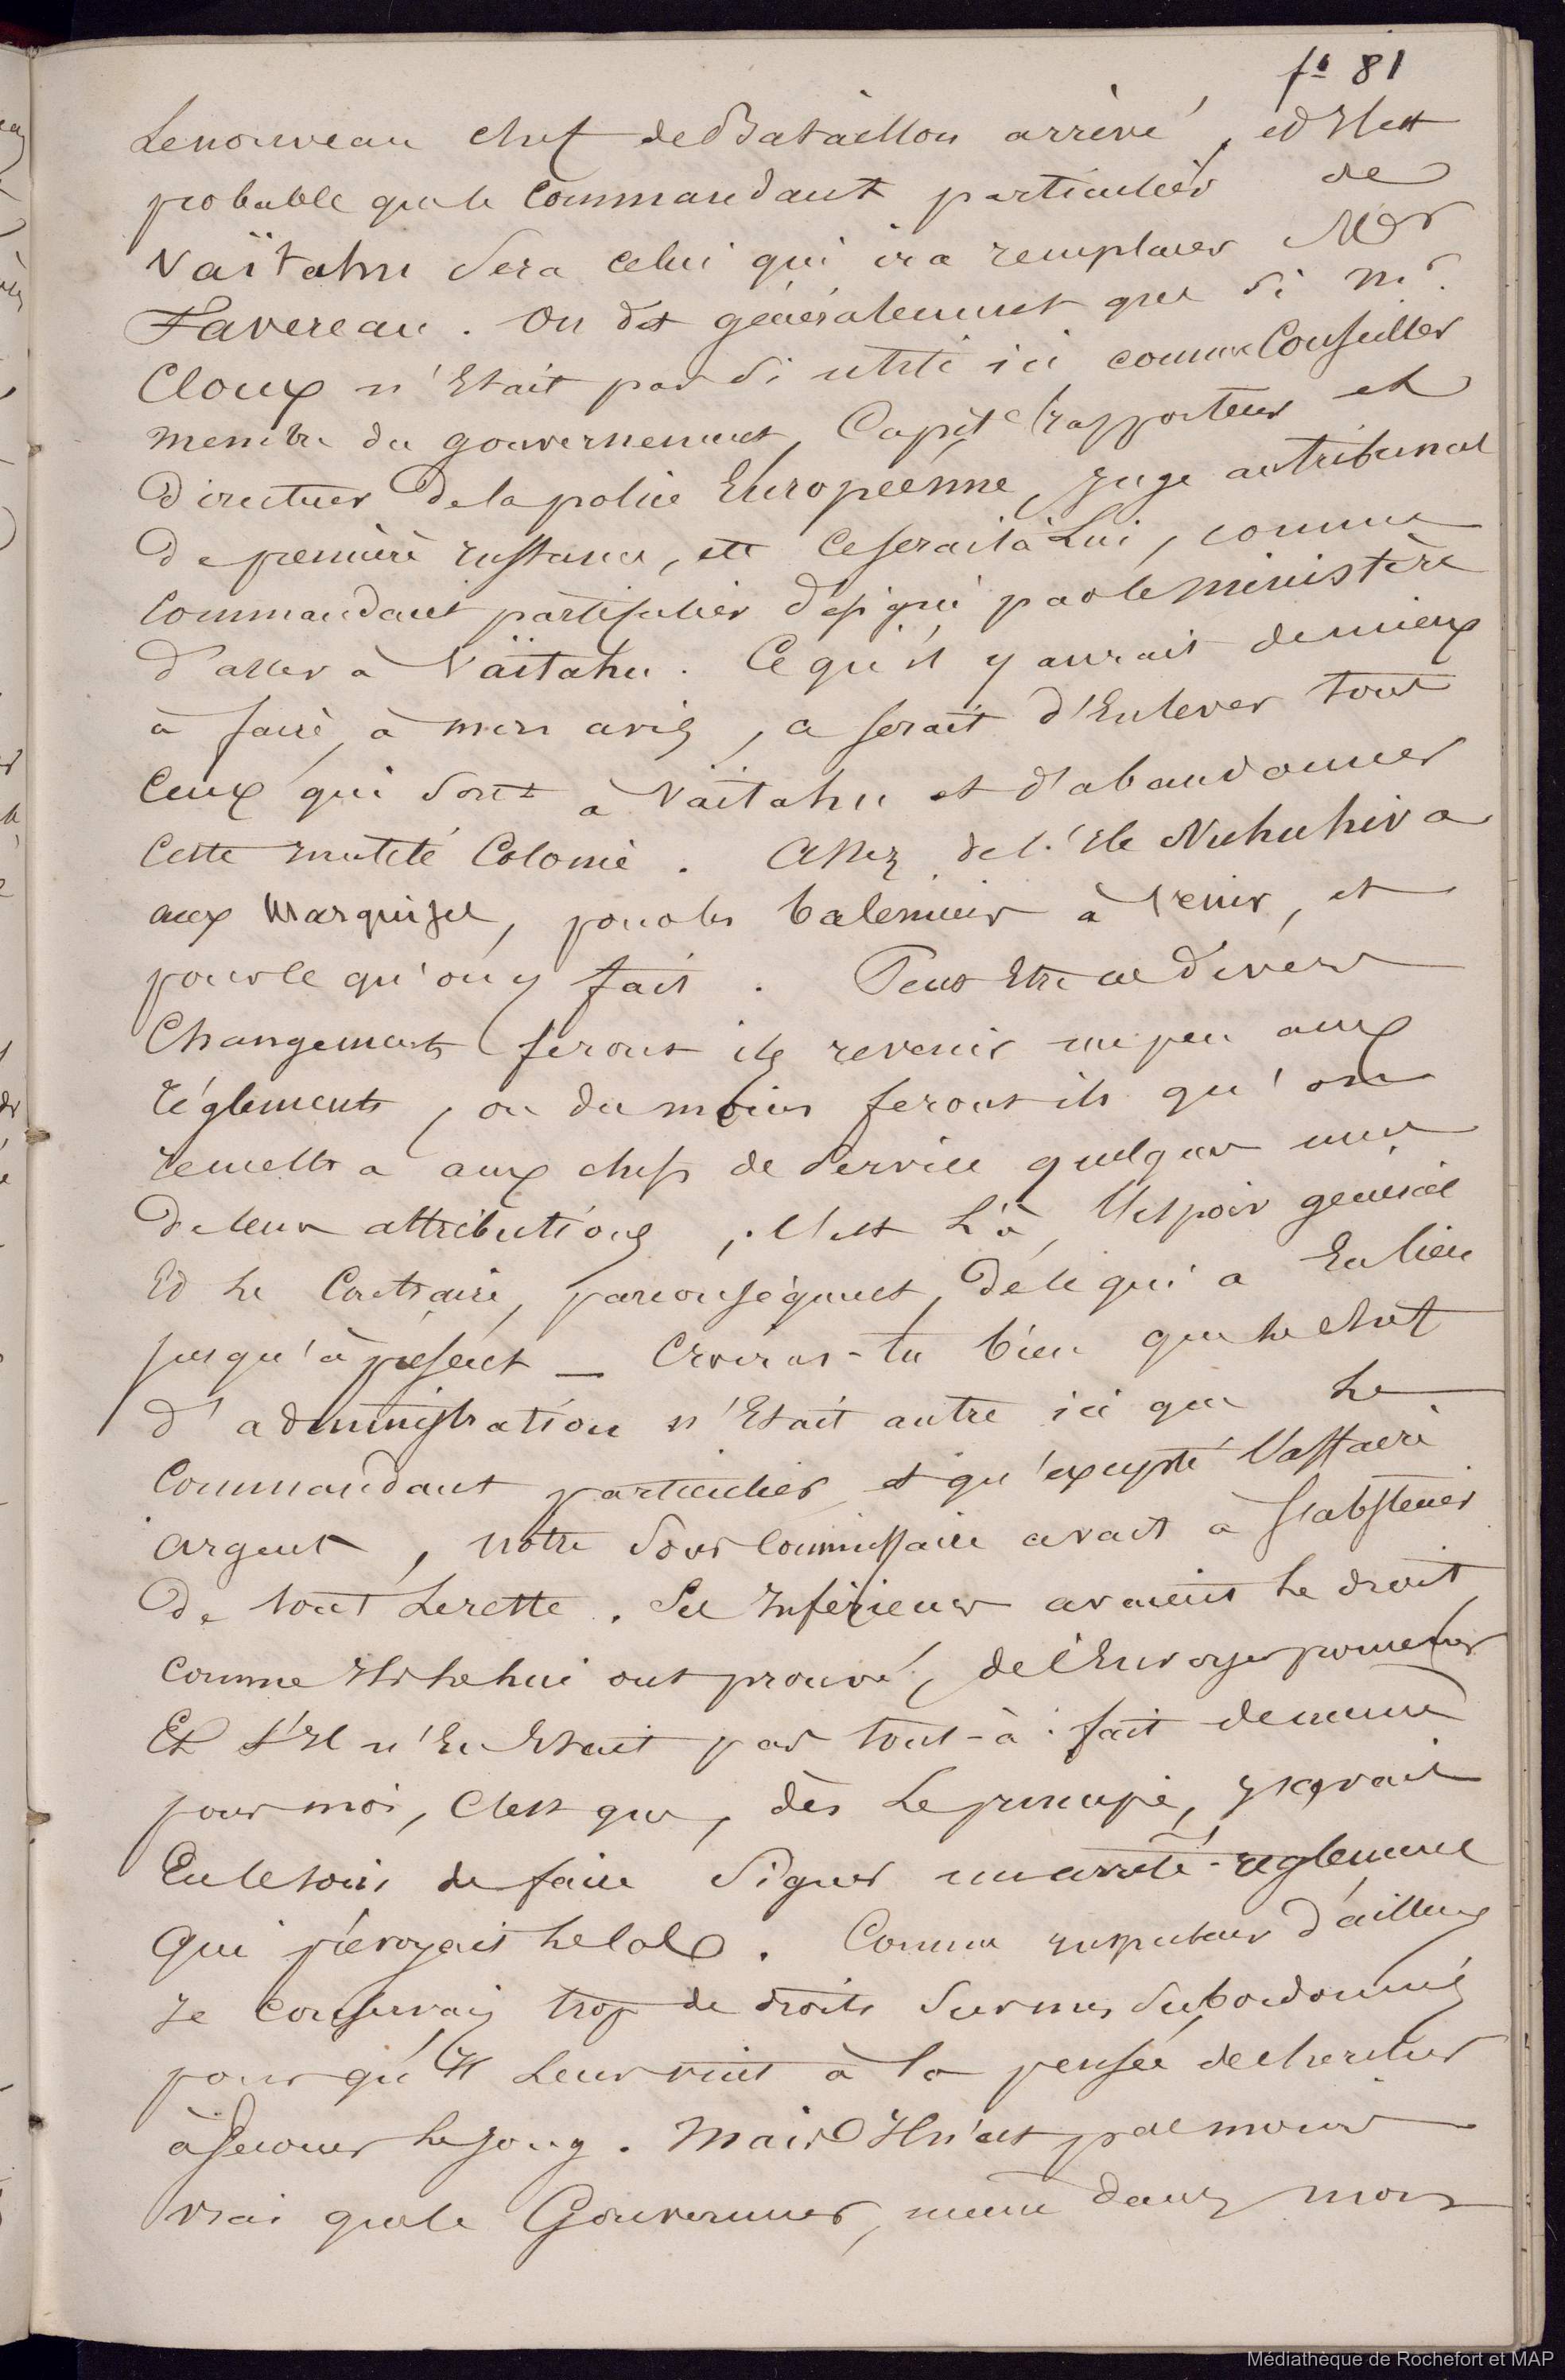 fº 81
Le nouveau chef de Bataillon arrivé, et Il est
probable que le Commandant particulier de
Vaïtahu Sera celui qui ira remplacer Mr
Favereau. On dit généralement que Si Mr.
Cloux n'Etait pas Si utile ici comme Conseiller
membre du gouvernement, Capit rapporteur et
Directeur De la police Européenne, Juge au tribunal
De première Instance, etc Ce serait à Lui, comme
Commandant particulier désigné par le Ministère
D'aller à Vaïtahu. Ce qu'il y aurait de mieux
à faire, à mon avis, ce serait d'Enlever tous
Ceux qui Sont à Vaïtahu et d'abandonner
Cette inutile Colonie. Assez de l'Ile Nuhuhiva
aux Marquises, pour les baleiniers à Venir, et
pour ce qu'on y fait. Peut Etre ces divers
Changements feront ils revenir un peu aux
réglements, ou du moins feront ils qu'on
remettra aux chefs de Service quelques unes
De leurs attributions; C'est Là, l'Espoir général
Et Le Contraire, par conséquent, De ce qui a Eu lieu
jusqu'à présent _ Croiras-tu bien que Le chef
d'administration n'Etait autre ici que Le
Commandant particulier, et qu'excepté l'affaire
argent, notre Sous Commissaire avait à s'abstenir
De tout Le reste. Ses Inférieurs avaient Le droit,
Comme Ils Le lui ont prouvé, de l'Envoyer promener
Et S'Il n'En Etait pas tout-à-fait de même
pour moi, C'est que, dès Le principe, J'avais
Eu le soin de faire Signer un arrêté-réglement
Qui prévoyait le cas. Comme inspecteur d'ailleurs
Je Conservais trop de droits Sur mes Subordonnés
pour qu'Il Leur vint à la pensée de chercher
à Secouer Le Joug. Mais Il n'est pas moins
Vrai que le Gouverneur, même dans mon
Médiathèque de Rochefort et MAP